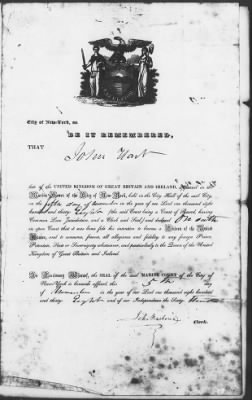 City of New-York, ss.
BE IT REMEMBERED,
THAT
John Hart
late of the UNITED KINGDOM OF GREAT BRITAIN AND IRELAND, appeared in the
Marine Court of the City of New York, held in the City Hall of the said City,
on the fifth day of November in the year of our Lord one thousand eight
hundred and thirty Eight (the said Court being a Court of Record, having
Common Law Jurisdiction, and a Clerk and Seal) and declared on oath
in open Court that it was bona fide his intention to become a Citizen of the United
States, and to renounce forever all allegiance and fidelity to any foreign Prince,
Potentate, State or Sovereignty whatsoever, and particularly to the Queen of the United
Kingdom of Great Britain and Ireland.
In Testimony Whereof, the SEAL of the said MARINE COURT of the City of
New-York is hereunto affixed, this 5th day
of November in the year of our Lord one thousand eight hundred
and thirty Eight and of our Independence the Sixty
Clerk.